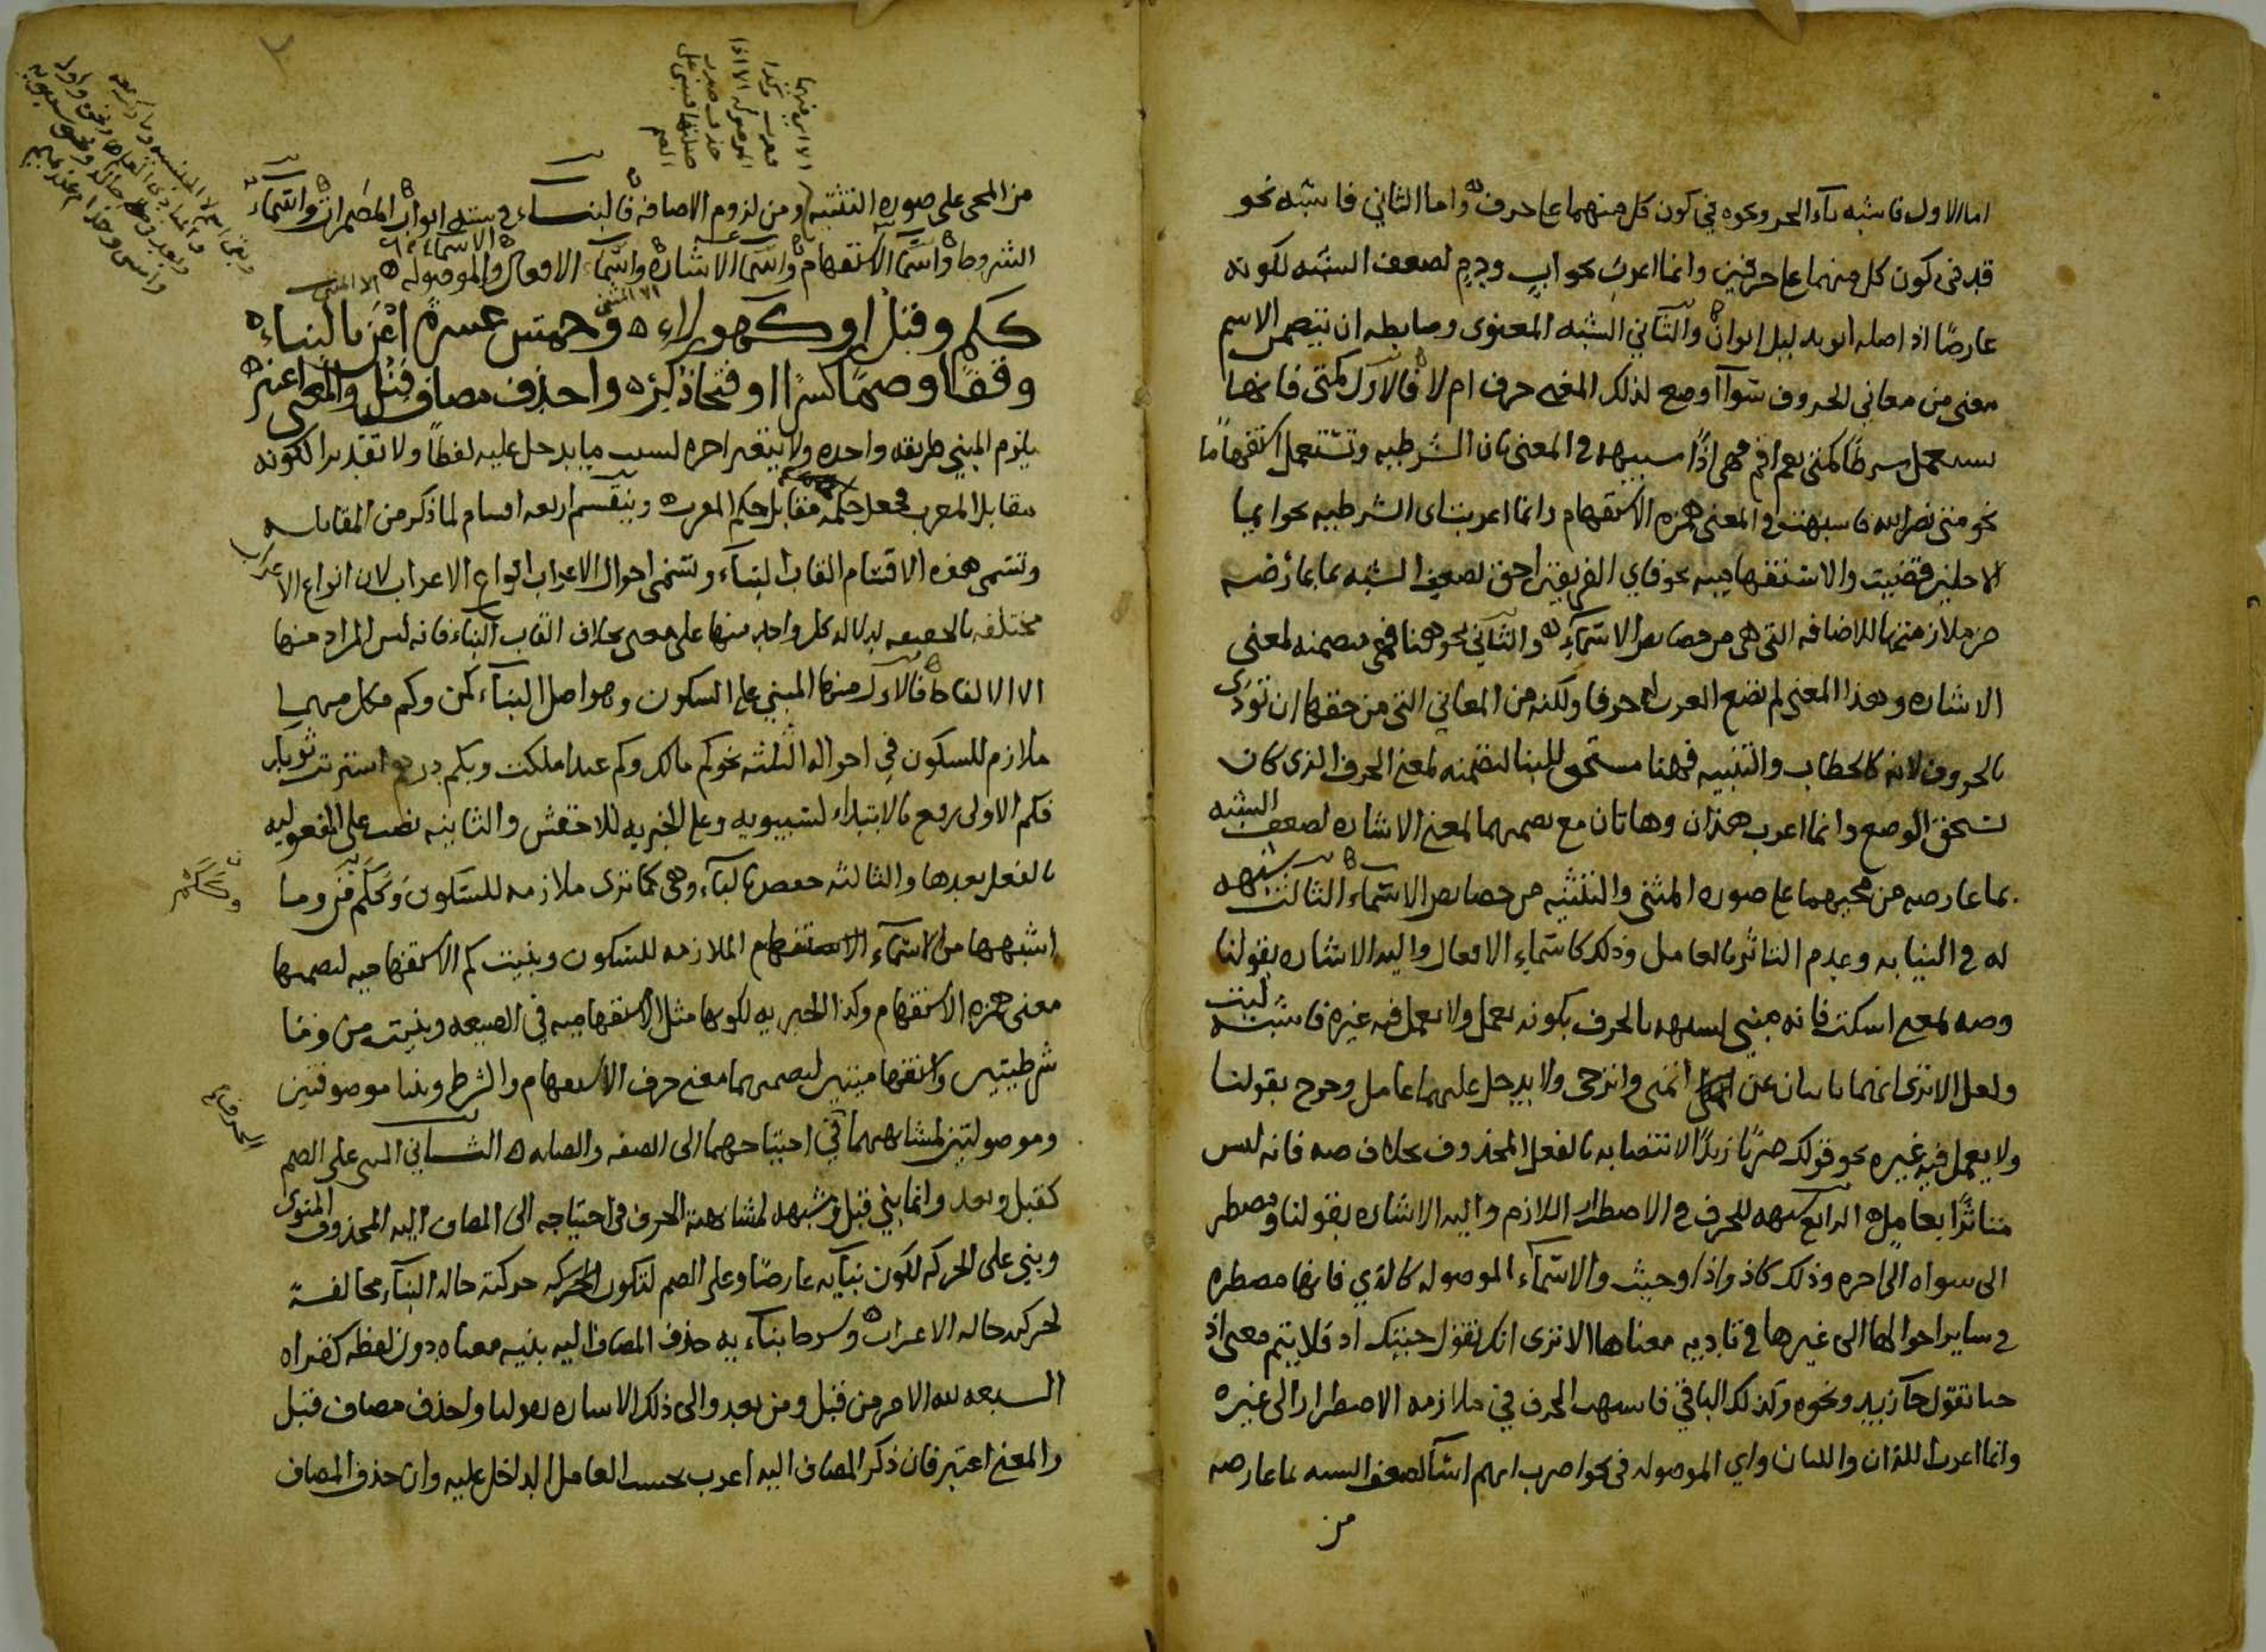 اما الاول فاشبه باء الجر ونحوه في كون كل منهما على حرف واما الثاني فاشبه نحو
قد في كون كل منهما على حرفين وانما اعرب نحو اب ودم لضعف الشبه لكونه
عارضا اذ اصله ابو بدليل ابوان والثاني الشبه المعنوى وضابطه ان يتضمن الاسم
معنى من معاني الحروف سوآ اوضع لذلك المعنى حرف ام لا فالاول كمتى فانها
تستعمل شرطا كمتى تقم اقم فهى اذا شبيهه في المعنى بان الشرطيه وتستعمل استفهاما
نحو متى نصر الله فاشبهت في المعنى همزه الاستفهام وانما اعربت اى الشرطيه نحو ايما
الاجلين قضيت والاستفهاميه نحو فاي الفريقين احق لضعف الشبه بما عارضه
من ملازمتها للاضافه التى هى من خصايص الاسمآء والثاني نحو هنا فهى متضمنه لمعنى
الاشاره وهذا المعنى لم تضع العرب له حرفا ولكنه من المعاني التى من حقها ان تؤدى
بالحروف لانه كالخطاب والتنبيه فهنا مستحق للبنا لتضمنه لمعنى الحرف الذى كان
يستحق الوضع وانما اعرب هذان وهاتان مع تضمنهما لمعنى الاشاره لضعف الشبه
بما عارضه من مجيهما على صوره المثنى والتثنيه من خصايص الاسماء الثالث شبهه
له في النيابه وعدم التاثر بالعامل وذلك كاسماء الافعال واليه الاشاره بقولنا
وصه لمعنى اسكت فانه مبنى لشبهه بالحرف بكونه يعمل ولا يعمل فيه غيره فاشبه ليت
ولعل الا ترى انهما نابتان عن اتمنى واترجى ولا يدخل عليهما عامل وخرج بقولنا
ولا يعمل فيه غيره نحو قولك ضربا زيدا لانتصابه بالفعل المحذوف بخلاف صه فانه ليس
متاثرا بعامل الرابع شبهه للحرف في الاضطرار اللازم واليه الاشاره بقولنا ومضطر
الى سواه الى اخره وذلك كاذ واذا وحيث والاسمآء الموصوله كالذي فانها مضطره
في ساير احوالها الى غيرها في تاديه معناها الا ترى انك تقول جيتك اذ فلا يتم معنى اذ
حتى تقول جآ زيد ونحوه وكذلك الباقي فاشبهت الحرف في ملازمه الاضطرار الى غيره
وانما اعرب اللذان واللتان واي الموصوله في نحو اضرب ايهم اسآ لضعف الشبه بما عارضه
من
من المجى على صوره التثنيه ومن لزوم الاضافه فالبنــاء في سته ابواب المضمرات واسماء
الشروط واسمآ الاستفهام واسمآ الاشاره واسمآء الافعال والموصوله
الاسماء
الا المثنى
كـكم وقبل او كـهولاء وخمس عشرة اعز بالبناء
وقفا وضما كسرا او فتحا ذكره واحذف مضاف قبل والمعنى اعتبر
يلزم المبني طريقه واحده ولا يتغير اخره لسبب ما يدخل عليه لفظا ولا تقديرا لكونه
مقابل المعرب فجعل حكمه مقابل حكم المعرب وينقسم اربعه اقسام لما ذكر من المقابله
وتسمى هذه الاقسام القاب البناء وتسمى احوال الاعراب انواع الاعراب لان انواع الاعراب
مختلفه بالحقيقه لدلاله كل واحد منها على معنى بخلاف القاب البناء فانه ليس المراد منها
الا الالفاظ فالاول منها المبني على السكون وهو اصل البناء كمن وكم فكل منهما
ملازم للسكون في احواله الثلثه نحو كم مالك وكم عبدا ملكت وبكم درهم اشتريت ثوبك
فكم الاولى رفع بالابتداء لسيبويه وعلى الخبريه للاخفش والثانيه نصب على المفعوليه
بالفعل بعدها والثالثه خفض بالباء وهى كما ترى ملازمه للسكون وككم من وما
اشبهها من الاسمآء الاستفهام الملازمه للسكون وبنيت كم الاستفهاميه لتضمنها
معنى همزه الاستفهام وكذا الخبريه لكونها مثل الاستفهاميه في الصيغه وبنيت من وما
شرطيتين واستفهاميتين لتضمنهما معنى حرف الاستفهام والشرط وبنيا موصوفتين
وموصولتين لمشابهتهما في احتياجهما الى الصفه والصله الثــاني المبنى على الضم
كقبل وبعد وانما بني قبل وشبهه لمشابهه الحرف في احتياجه الى المضاف اليه المحذوف المنوى
وبني على الحركه لكون بنآيه عارضا وعلى الضم لتكون حركته حاله البنآء مخالفه
لحركته حاله الاعراب وشرط بناء يه حذف المضاف اليه بنيه معناه دون لفظه كقراه
السبعه لله الامر من قبل ومن بعد والى ذلك الاشاره بقولنا واحذف مضاف قبل
والمعنى اعتبر فان ذكر المضاف اليه اعرب بحسب العامل الداخل عليه وان حذف المضاف